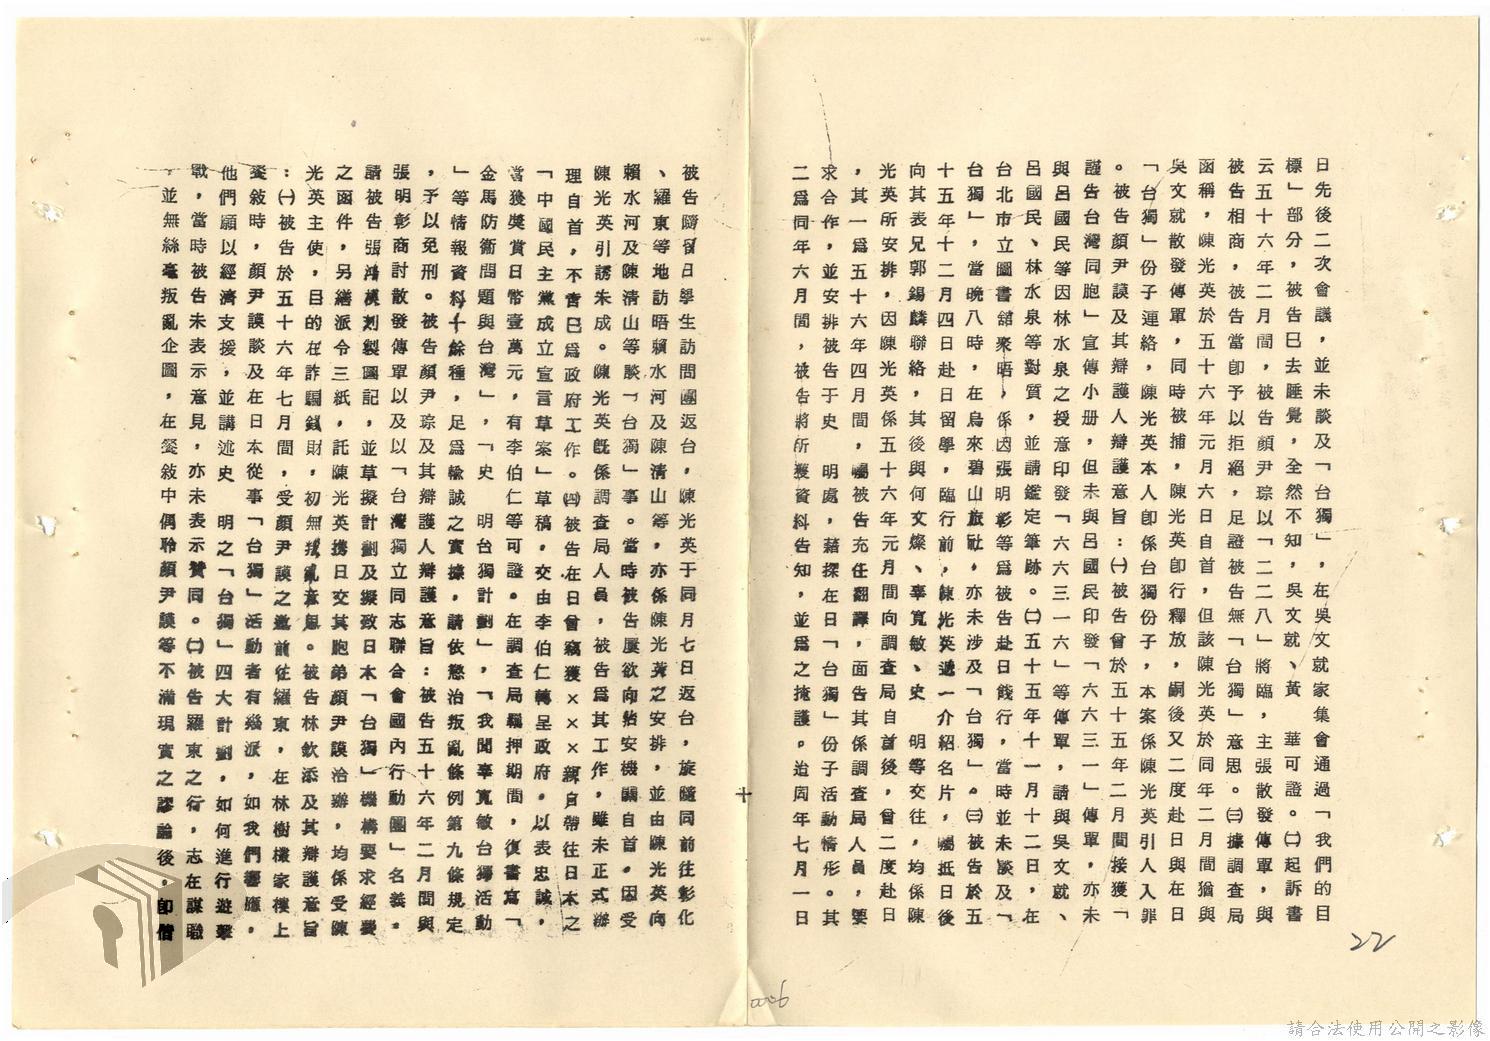 日先後二次會議，並未談及「台獨」，在吳文就家集會通過「我們的目
標」部分，被告已去睡覺，全然不知，吳文就、黃　華可證。㈡起訴書
云五十六年二月間，被告顏尹琮以「二二八」將臨，主張散發傳單，與
被告相商，被告當卽予以拒絕，足證被告無「台獨」意思。㈢據調查局
函稱，陳光英於五十六年元月六日自首，但該陳光英於同年二月間猶與
吳文就散發傳單，同時被捕，陳光英卽行釋放，嗣後又二度赴日與在日
「台獨」份子連絡，陳光英本人卽係台獨份子，本案係陳光英引人入罪
。被告顏尹謨及其辯護人辯護意旨：㈠被告曾於五十五年二月間接獲「
謹告台灣同胞」宣傳小册，但未與呂國民印發「六六三一」傳單，亦未
與呂國民等因林水泉之授意印發「六六三一六」等傳單，請與吳文就、
呂國民、林水泉等對質，並請鑑定筆跡。㈡五十五年十一月十二日，在
台北市立圖書舘衆晤，係因張明彰等爲被告赴日餞行，當時並未談及「
台獨」，當晚八時，在烏來碧山旅社，亦未涉及「台獨」。㈢被告於五
十五年十二月四日赴日留學，臨行前，陳光英遞一介紹名片，囑抵日後
向其表兄郭錫麟聯絡，其後與何文燦、辜寬敏、史　明等交往，均係陳
光英所安排，因陳光英係五十六年元月間向調查局自首後，曾二度赴日
，其一爲五十六年四月間，囑被告充任翻譯，面告其係調查局人員，要
求合作，並安排被告于史　明處，藉探在日「台獨」份子活動情形。其
二爲同年六月間，被告將所獲資料告知，並爲之掩護。迨同年七月一日
被告隨留日學生訪問團返台，陳光英于同月七日返台，旋隨同前往彰化
、羅東等地訪晤賴水河及陳清山等，亦係陳光英之安排，並由陳光英向
賴水河及陳清山等談「台獨」事。當時被告屢欲向治安機關自首，因受
陳光英引誘未成。陳光英旣係調查局人員，被告爲其工作，雖未正式辦
理自首，不啻已爲政府工作。㈣被告在日曾竊獲×××親自帶往日本之
「中國民主黨成立宣言草案」草稿，交由李伯仁轉呈政府，以表忠誠，
當獲奬賞日幣壹萬元，有李伯仁等可證。在調查局羈押期間，復書寫「
金馬防衞問題與台灣」，「史　明台獨計劃」，「我聞辜寬敏台獨活動
」等情報資料十餘種，足爲輸誠之實據，請依懲治叛亂條例第九條規定
，予以免刑。被告顏尹琮及其辯護人辯護意旨：被告五十六年二月間與
張明彰商討散發傳單以及以「台灣獨立同志聯合會國內行動團」名義，
請被告張鴻模刻製圖記，並草擬計劃及擬致日本「台獨」機構要求經費
之函件，另繕派令三紙，託陳光英携日交其胞弟顏尹謨洽辦，均係受陳
光英主使，目的在詐騙錢財，初無叛亂意思。被告林欽添及其辯護意旨
：㈠被告於五十六年七月間，受顏尹謨之邀前往羅東，在林樹欉家樓上
餐敘時，顏尹謨談及在日本從事「台獨」活動者有幾派，如我們響應，
他們願以經濟支援，並講述史　明之「台獨」四大計劃，如何進行遊擊
戰，當時被告未表示意見，亦未表示贊同。㈡被告羅東之行，志在謀職
，並無絲毫叛亂企圖，在餐敘中偶聆顏尹謨等不滿現實之謬論後，卽借
22
006
請合法使用公開之影像